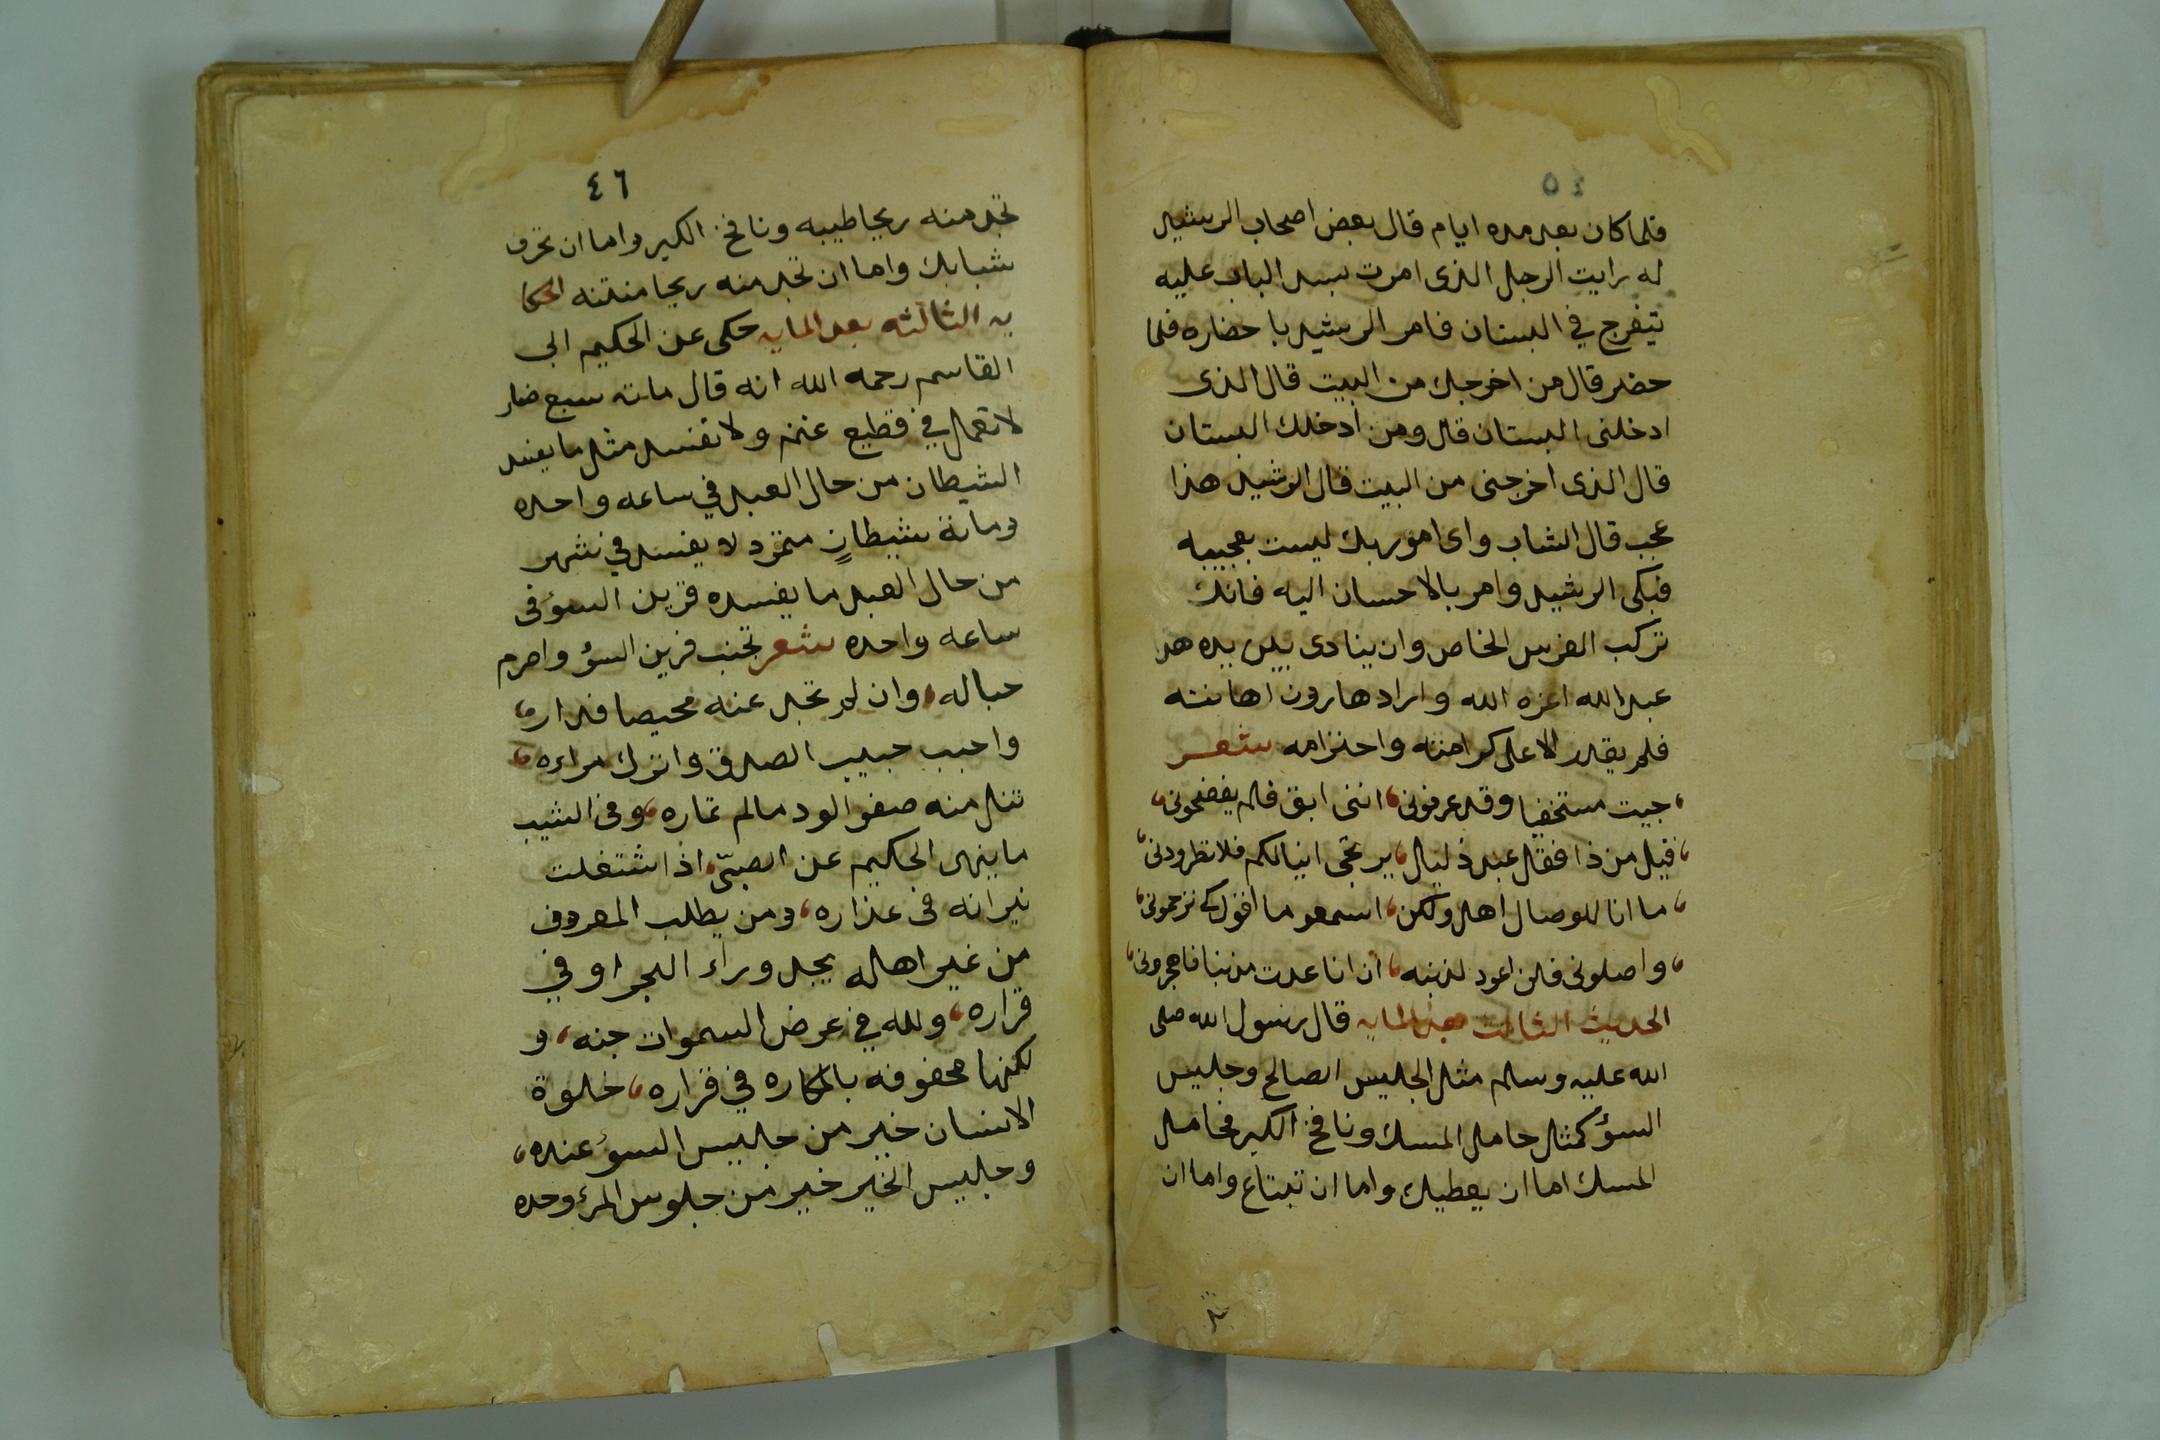 فلما كان بعد مده ايام قال بعض اصحاب الرشيد
له رايت الرجل الذى امرت بسد الباب عليه
يتفرج في البستان فامر الرشيد باحضاره فلما
حضر قال من اخرجك من البيت قال الذى
ادخلنى البستان قال ومن ادخلك البستان
قال الذى اخرجنى من البيت قال الرشيد هذا
عجب قال الشاب واى امور ربك ليست بعجيبه
فبكى الرشيد وامر بالاحسان اليه
تركب الفرس الخاص وان ينادى بين يده هذا
عبد الله اعزه الله واراد هارون اهانته
فلم يقدر الا على كرامته واحترامه شعر
جيت مستخفيا وقد عرفونى، اننى ابق فلم يفضحونى،
قيل من ذا فقال عبد ذليل، يرتجى فلا تطرودنى،
ما انا للوصال اهل ولكن، اسمعو ما اقول كى ترحمونى،
واصلونى فلن اعود لذنبه، ان انا عدت مذنبا فاهجرونى،
الحديث الثالث بعد المايه قال رسول الله صلى
الله عليه وسلم مثل الجليس الصالح وجليس
السؤ كمثل حامل المسك ونافخ الكير فحامل
المسك اما ان يعطيك واما ان تبتاع واما ان
تجد
٤٦
تجد منه ريحا طيبه ونافخ الكير واما ان تحرق
شبابك واما ان تجد منه ريحا منتنه الحكا
يه الثالثه بعد المايه حكى عن الحكيم ابى
القاسم رحمه الله انه قال مائه سبع ضار
لا تعمل في قطيع غنم ولا تفسد مثل ما يفسد
الشيطان من حال العبد في ساعه واحده
ومائة شيطانٍ متمرد لا يفسد في شهر
من حال العبد ما يفسده قرين السؤ فى
ساعه واحده شعر تجنب قرين السؤ واصرم
حباله، وان لم تجد عنه محيصا فداره،
واحبب حبيب الصدق واترك مراءه،
تنل منه صفو الود مالم تماره، وفى الشيب
ما ينهى الحكيم عن الصبىّ، اذا اشتعلت
نيرانه فى عذاره، ومن يطلب المعروف
من غير اهله يجد وراء البحر او في
قراره، ولله في عرض السموات جنه، و
لكنها محفوفه بالمكاره في قراره، خلوة
الانسان خير من جليس السؤ عنده،
وجليس الخير خير من جلوس المرء وحده